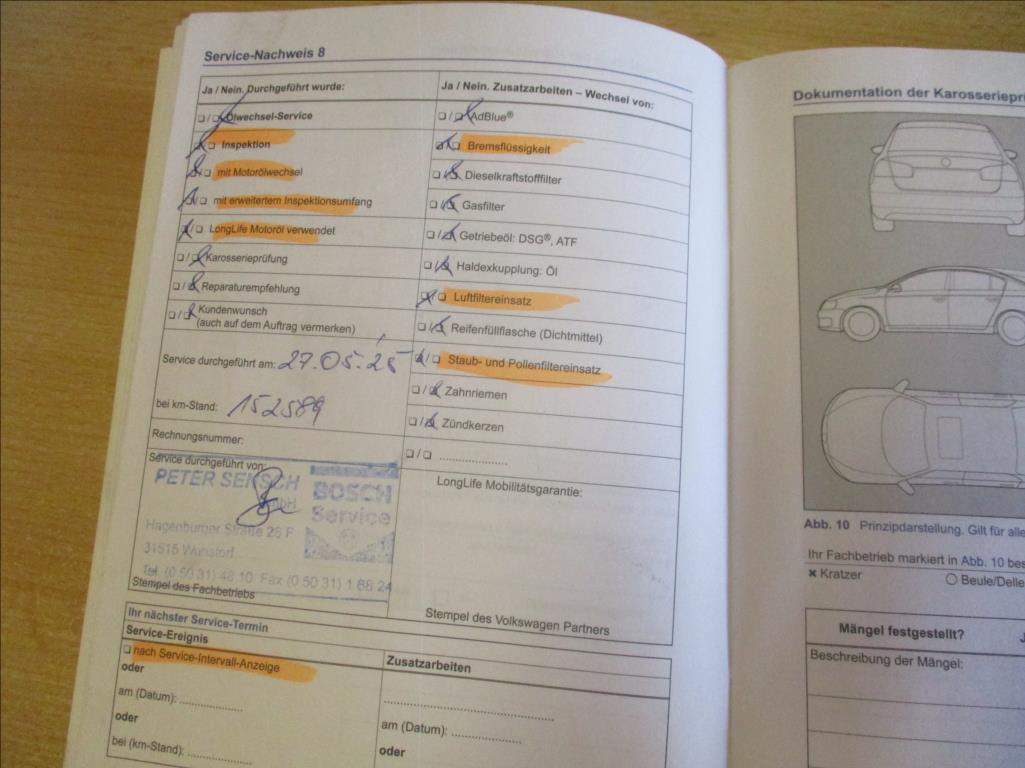 Service-Nachweis 8
Ja / Nein. Durchgeführt wurde:
❏ / ❏ Ölwechsel-Service
❏ / ❏ Inspektion
❏ / ❏ mit Motorölwechsel
❏ / ❏ mit erweitertem Inspektionsumfang
❏ / ❏ LongLife Motoröl verwendet
❏ / ❏ Karosserieprüfung
❏ / ❏ Reparaturempfehlung
❏ / ❏ Kundenwunsch
(auch auf dem Auftrag vermerken)
Service durchgeführt am: 27.05.25
bei km-Stand: 152589
Rechnungsnummer:
Service durchgeführt von:
PETER SENSCH
GmbH
BOSCH
Service
Hagenburger Straße 26 F
31515 Wunstorf
Tel. (0 50 31) 46 10 Fax (0 50 31) 1 68 24
Stempel des Fachbetriebs
Ja / Nein. Zusatzarbeiten – Wechsel von:
❏ / ❏ AdBlue®
❏ / ❏ Bremsflüssigkeit
❏ / ❏ Dieselkraftstofffilter
❏ / ❏ Gasfilter
❏ / ❏ Getriebeöl: DSG®, ATF
❏ / ❏ Haldexkupplung: Öl
❏ / ❏ Luftfiltereinsatz
❏ / ❏ Reifenfüllflasche (Dichtmittel)
❏ / ❏ Staub- und Pollenfiltereinsatz
❏ / ❏ Zahnriemen
❏ / ❏ Zündkerzen
❏ / ❏ ......................
LongLife Mobilitätsgarantie:
Stempel des Volkswagen Partners
Ihr nächster Service-Termin
Service-Ereignis
❏ nach Service-Intervall-Anzeige
oder
am (Datum): ....................
oder
bei (km-Stand): ....................
Zusatzarbeiten
..................................................
am (Datum): ......................
oder
Dokumentation der Karosseriepr
Abb. 10 Prinzipdarstellung. Gilt für alle
Ihr Fachbetrieb markiert in Abb. 10 bes
✖ Kratzer ○ Beule/Delle
Mängel festgestellt?
Beschreibung der Mängel: